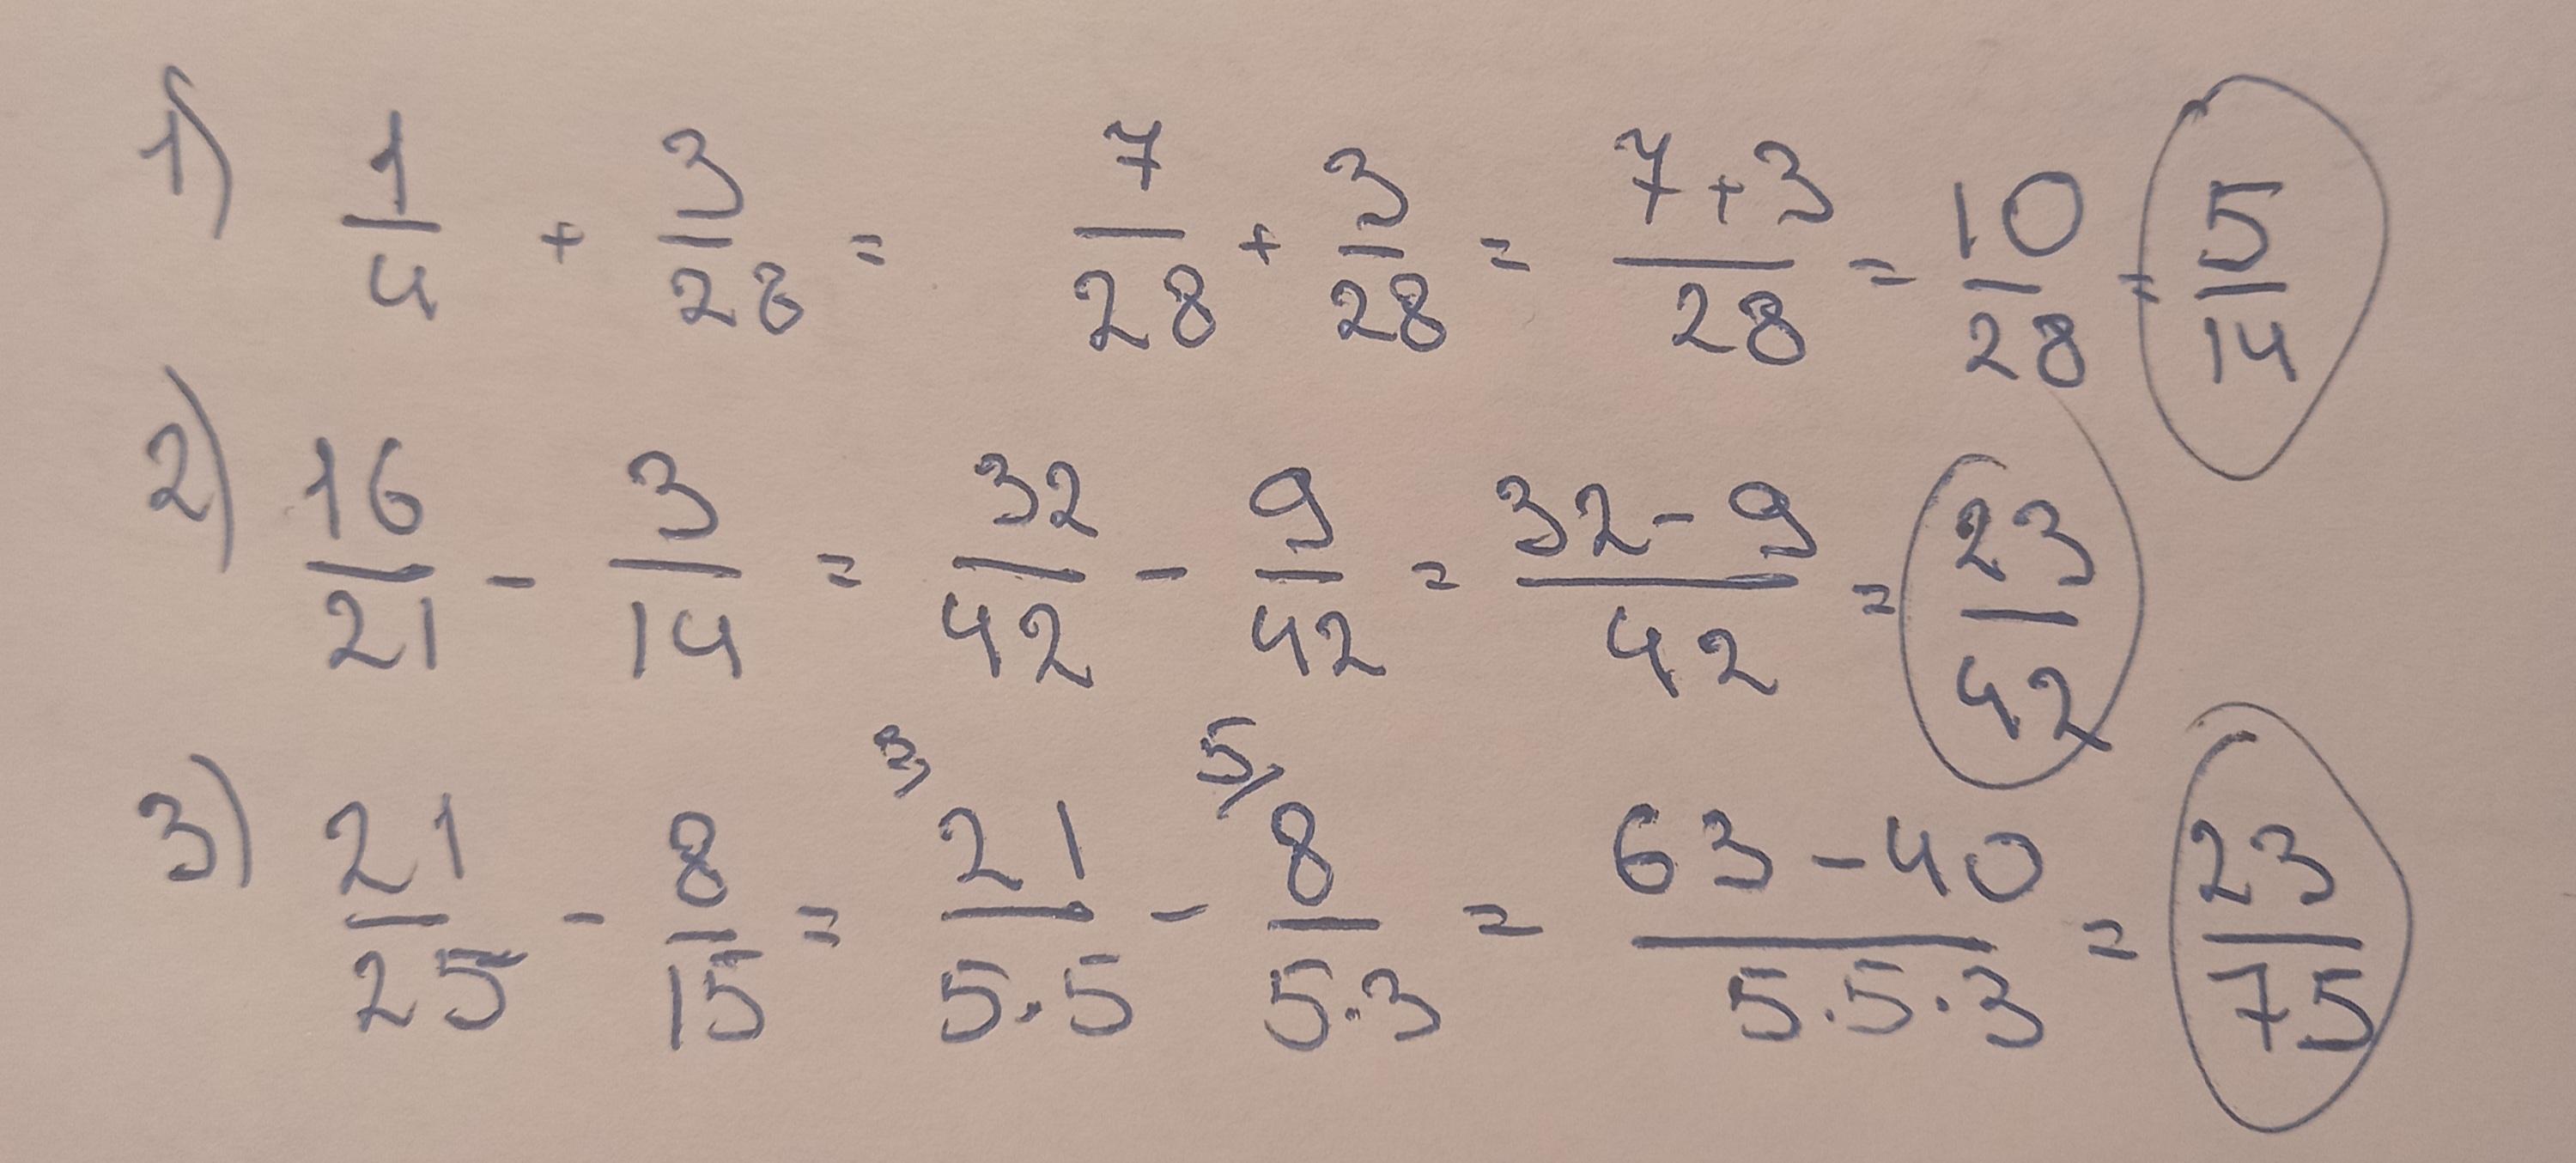 1) 1/4 + 3/28 = 7/28 + 3/28 = (7+3)/28 = 10/28 = 5/14
2) 16/21 - 3/14 = 32/42 - 9/42 = (32-9)/42 = 23/42
3) 21/25 - 8/15 = 3) 21/(5·5) - 5/ 8/(5·3) = (63-40)/(5·5·3) = 23/75